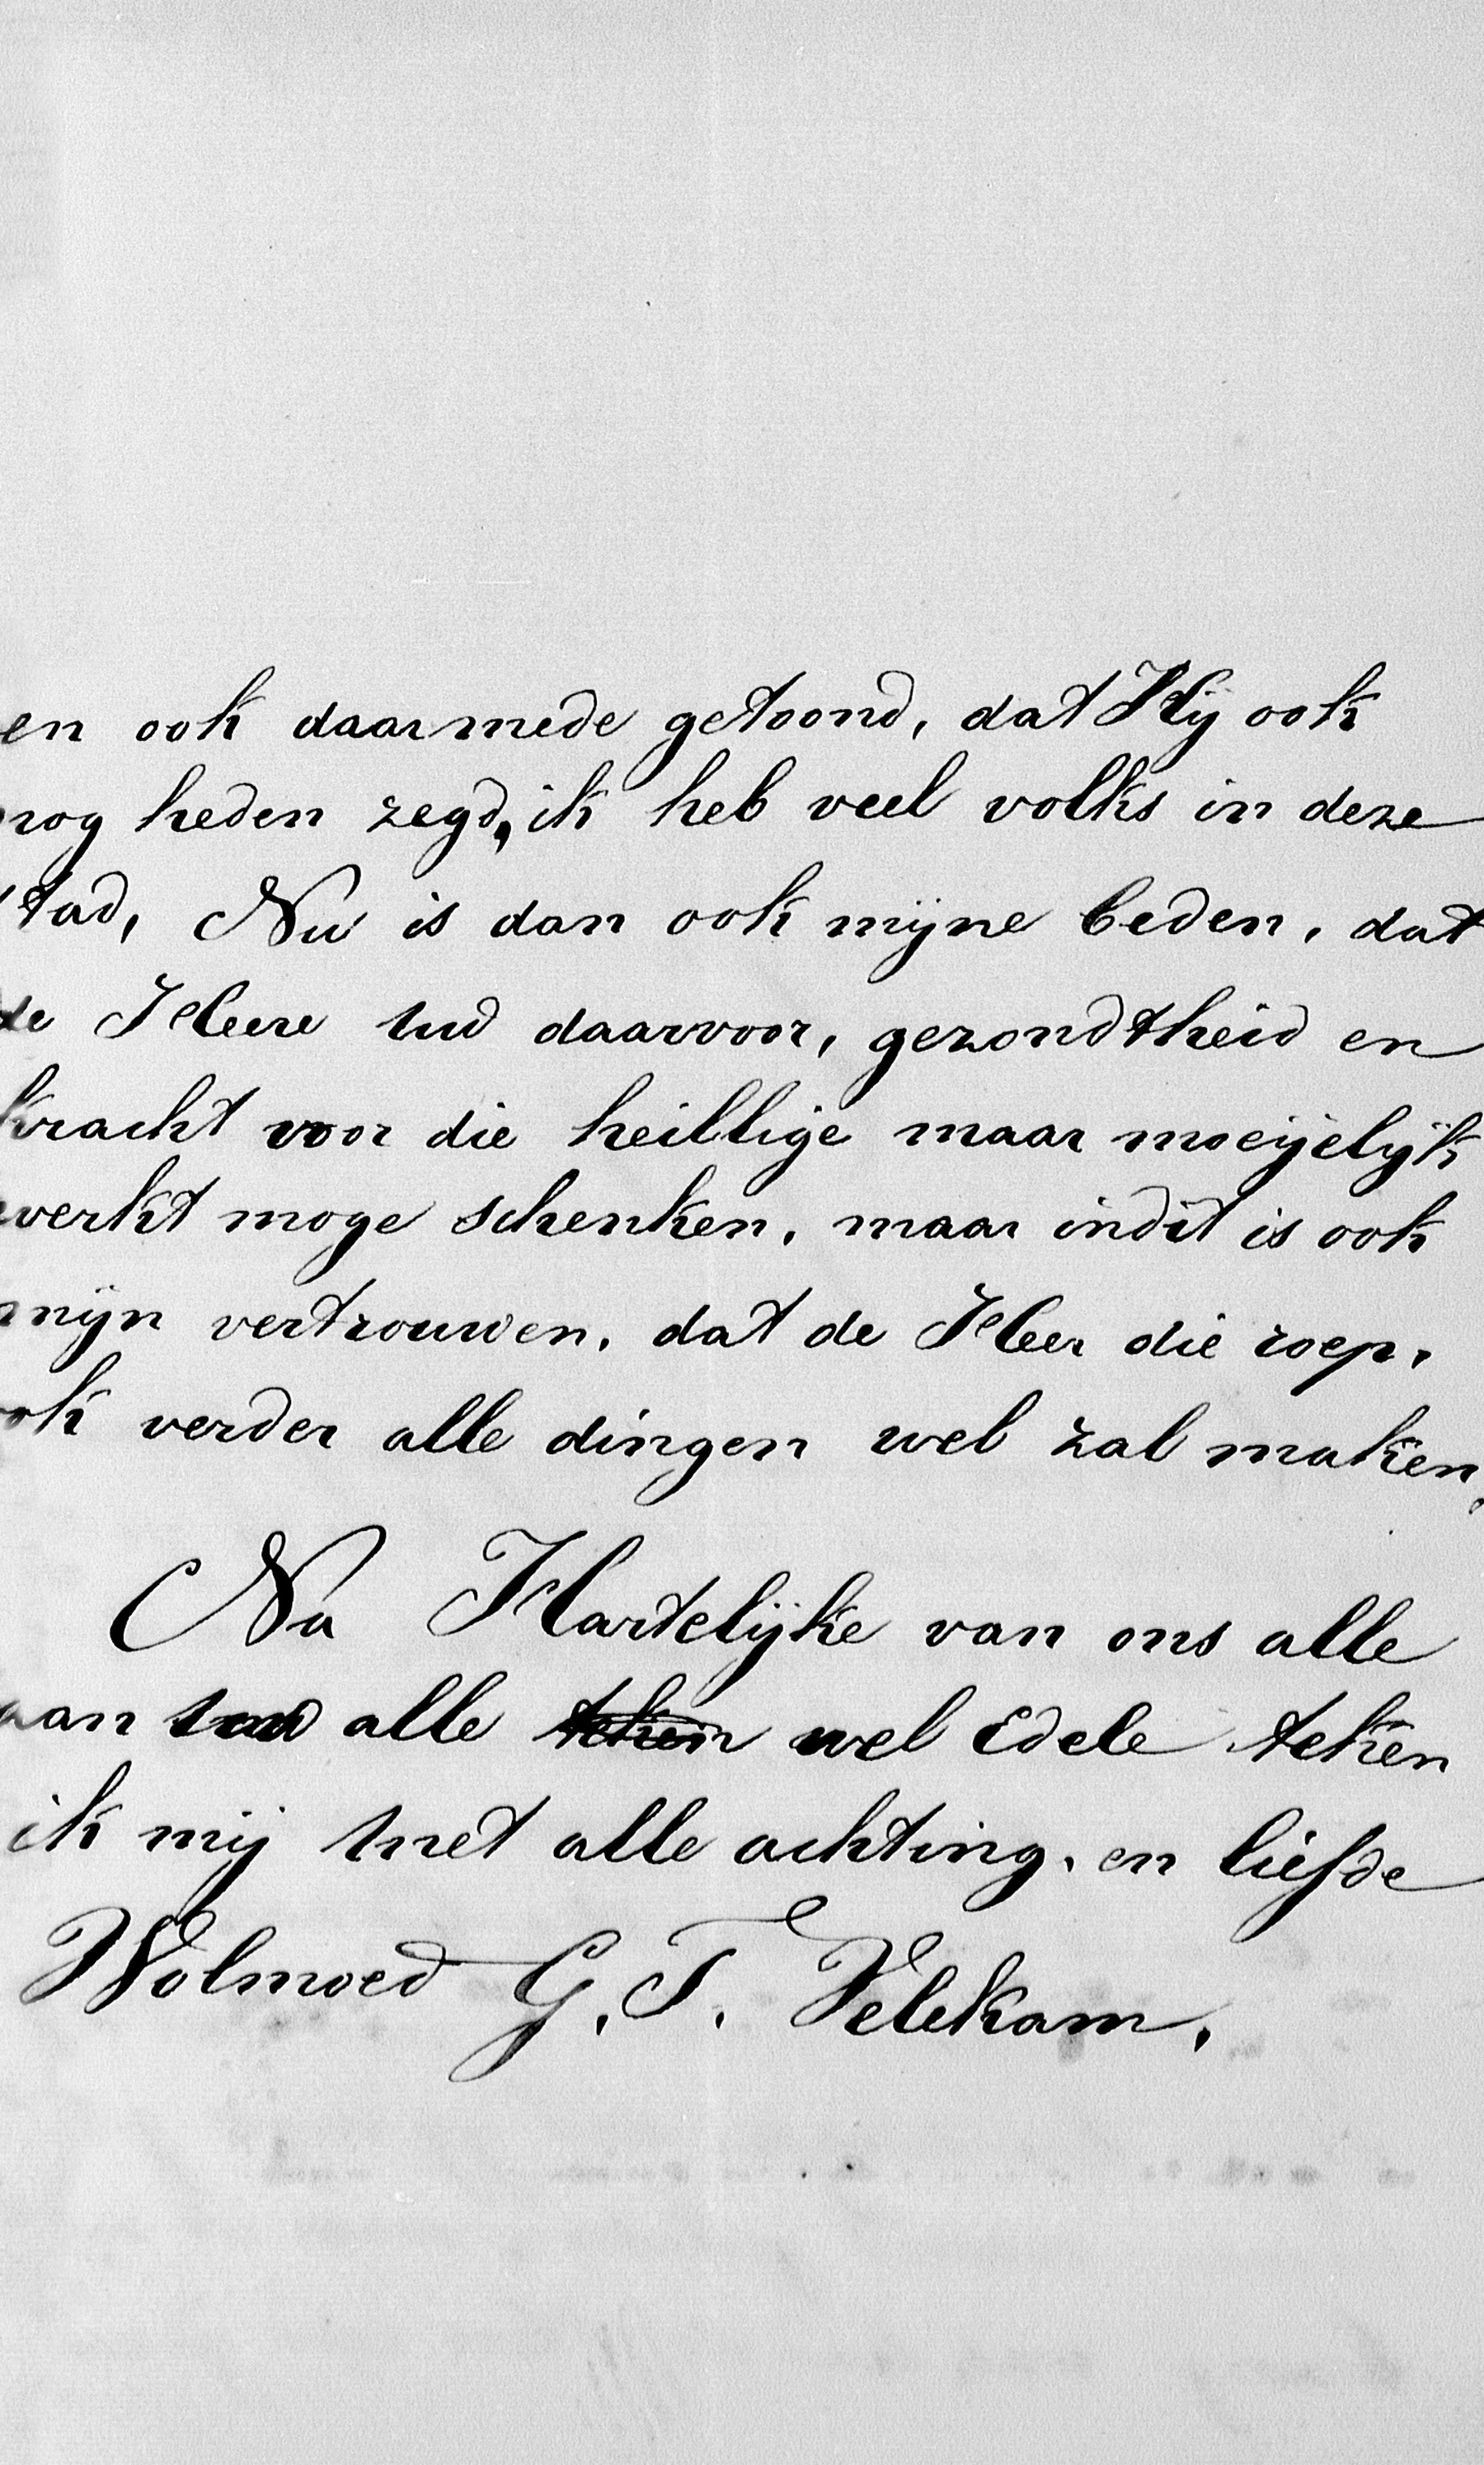 en ook daarmede getoond, dat Hij ook
nog heden zegd, ik heb veel volks in deze
stad, Nu is dan ook mijne beden, dat
de Heere uw daarvoor, gezondtheid en
kracht voor die heillige maar moeijelijk
werkt moge schenken, maar indit is ook
mijn vertrouwen, dat de Heer die roep,
ook verder alle dingen wel zal maken,
Na Hartelijke van ons alle
aan alle wel Edele teken
ik mij met alle achting, en liefde
Wolmoed G. T. Velekam.